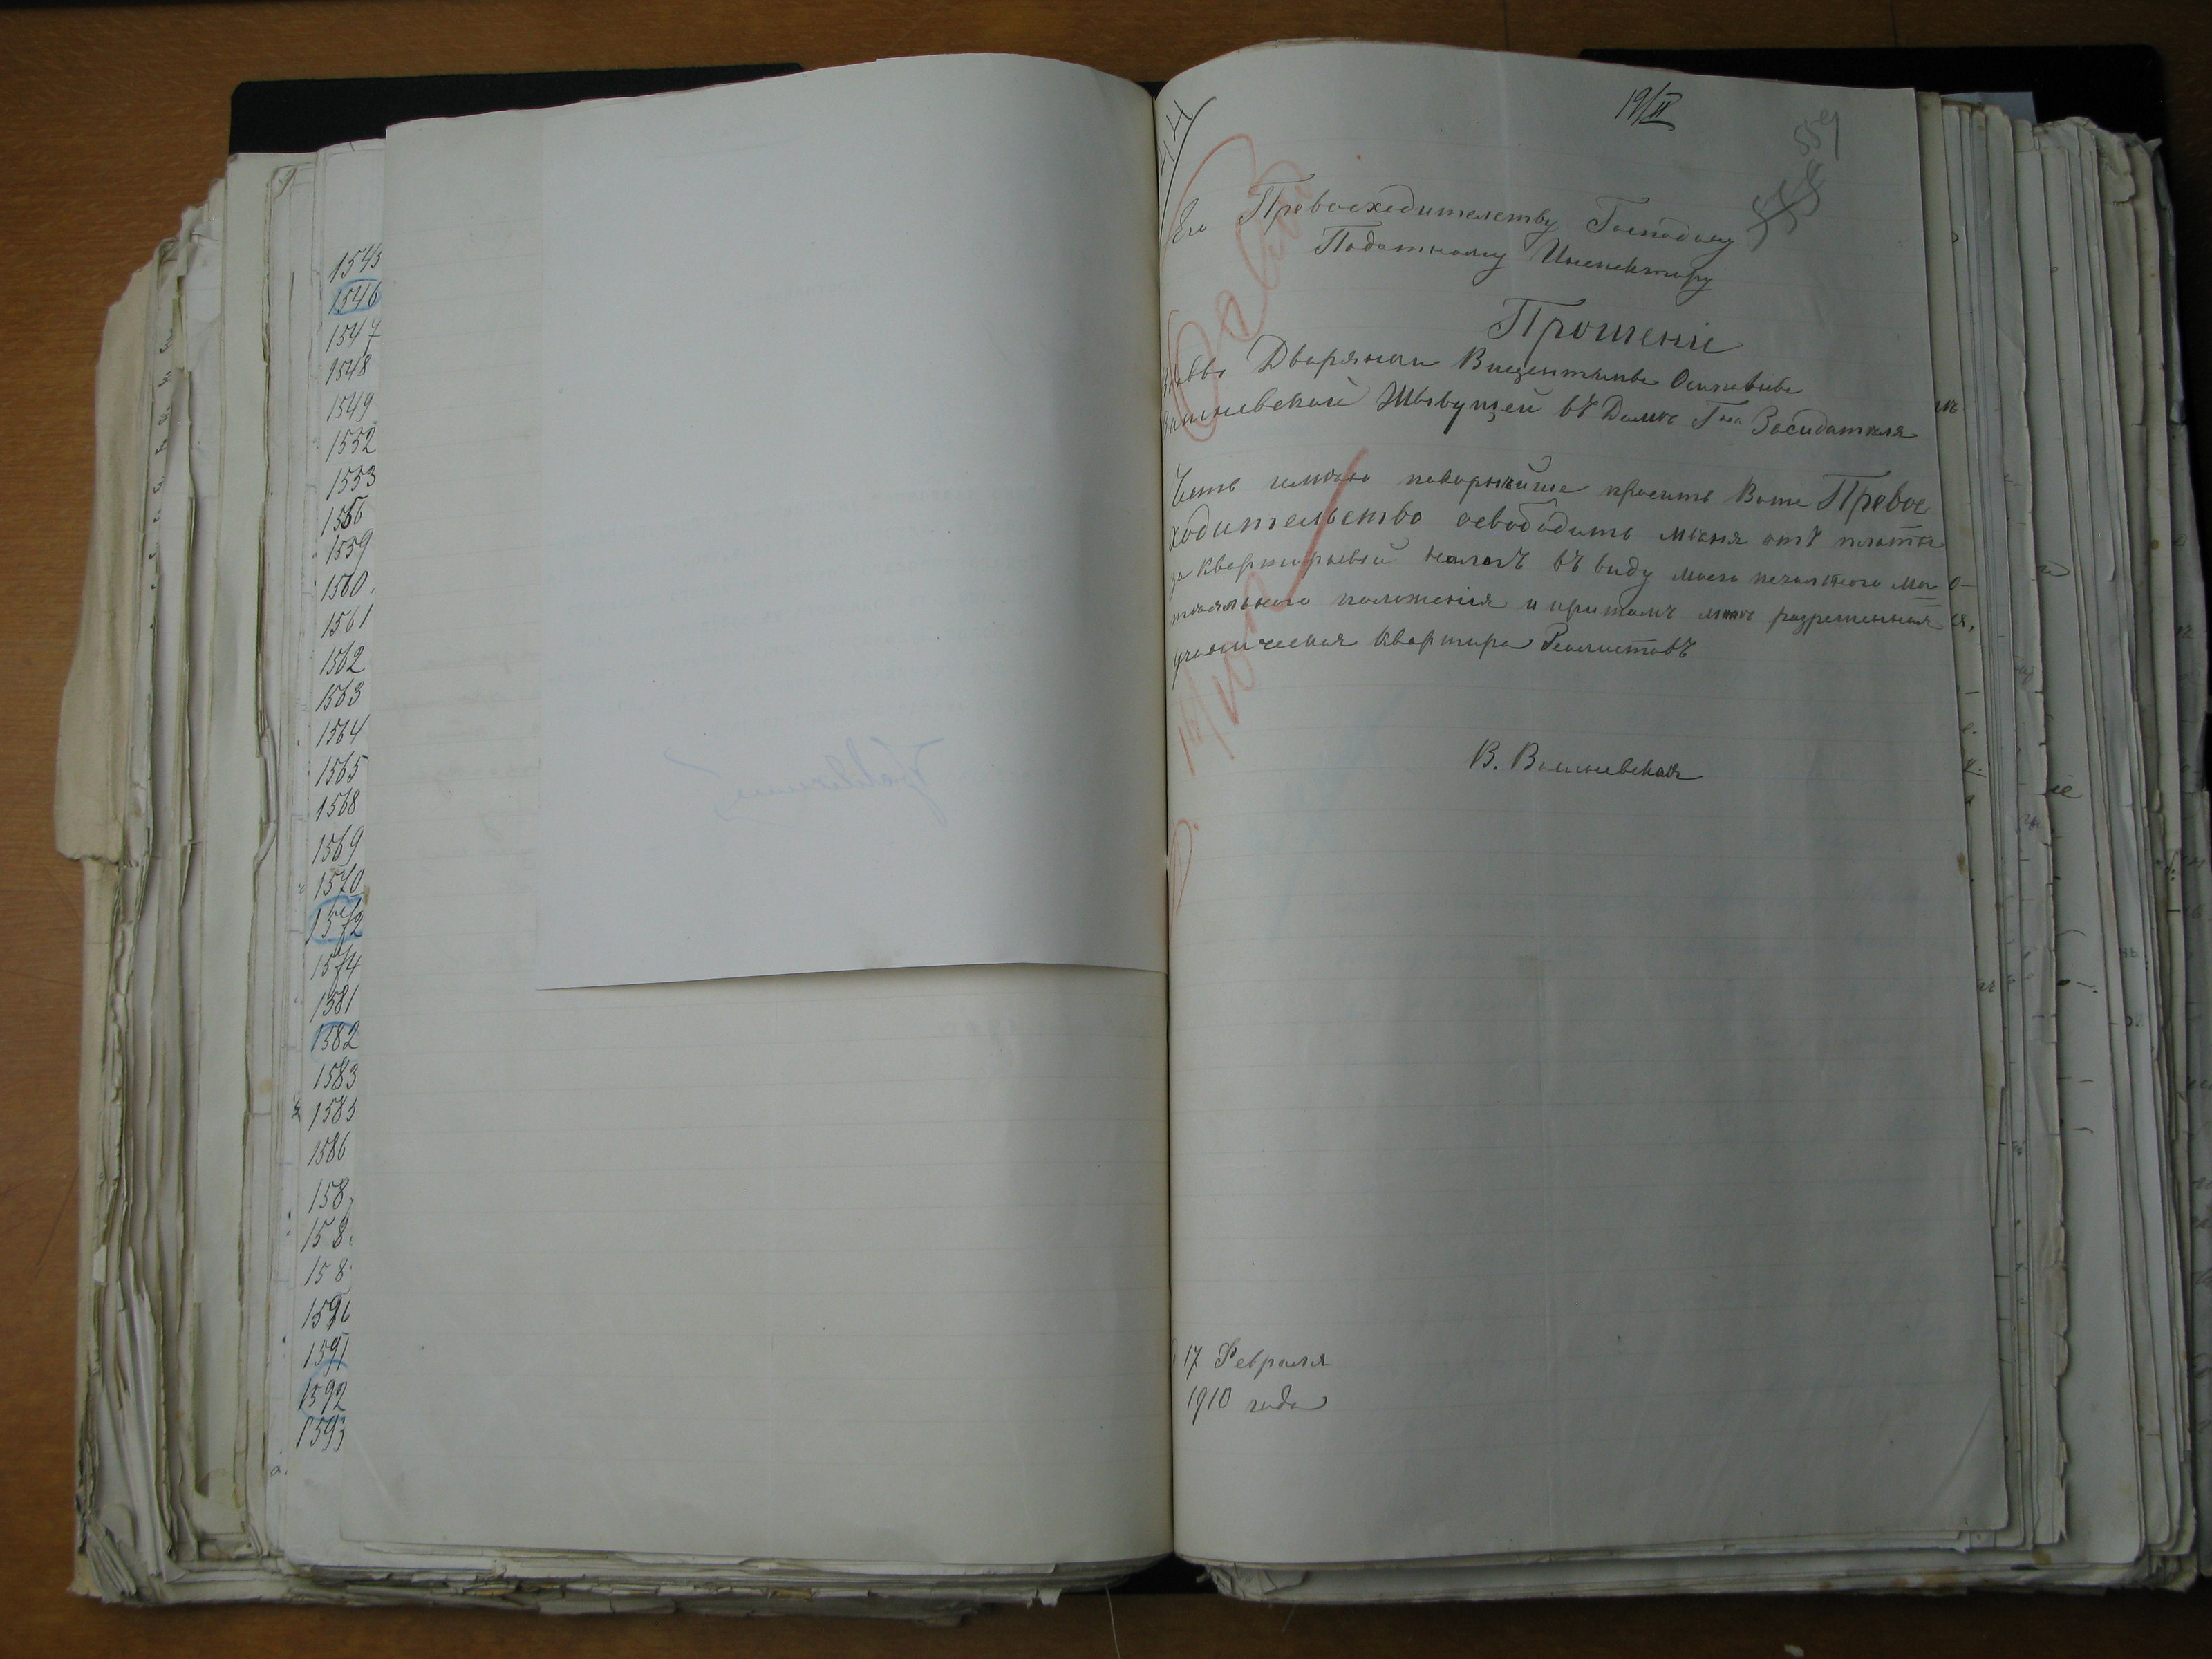 1545
1546
1547
1548
1549
1552
1553
1556
1559
1560.
1561
1562
1563
1564
1565
1568
1569
1570
1572
1574
1581
1582
1583
1585
1586
158
158
158
1591
1592
1593
19/II
559
558
Его Превосходителству Господину
Податному Инспектору
Прошеніе
Дворянки Викентины Осиповны
Вышневской Жывущей въ Домѣ Гна Засидателя
Честь имѣю покорнѣйше просить Ваше Превос
ходительство освободить мѣня отъ платы
за квартирный налогъ въ виду моего печального ма
положенія и притомъ мнѣ разрешенная
ученическая квартира Реалистовъ
В. Вышневская
17 Февраля
1910 года